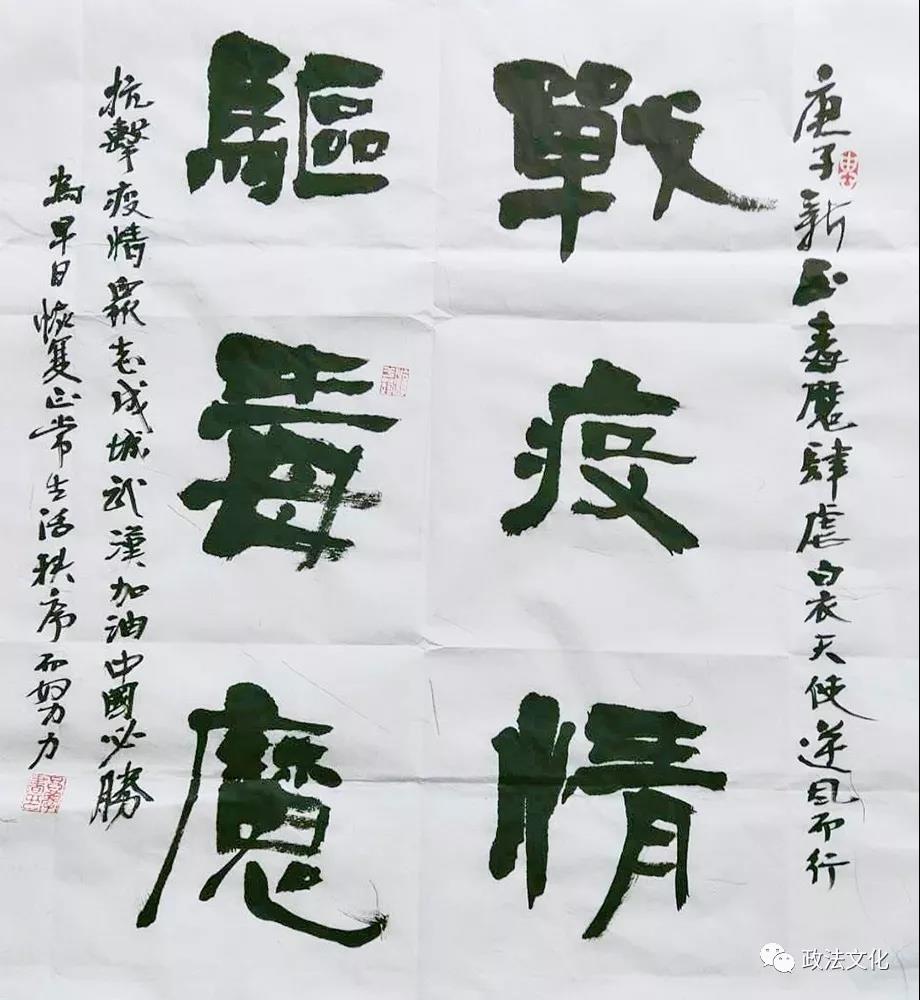 庚子新正毒魔肆虐白衣天使逆风而行
戰疫情
驅毒魔
抗擊疫情眾志成城武漢加油中國必勝
為早日恢复正常生活秩序而努力
政法文化